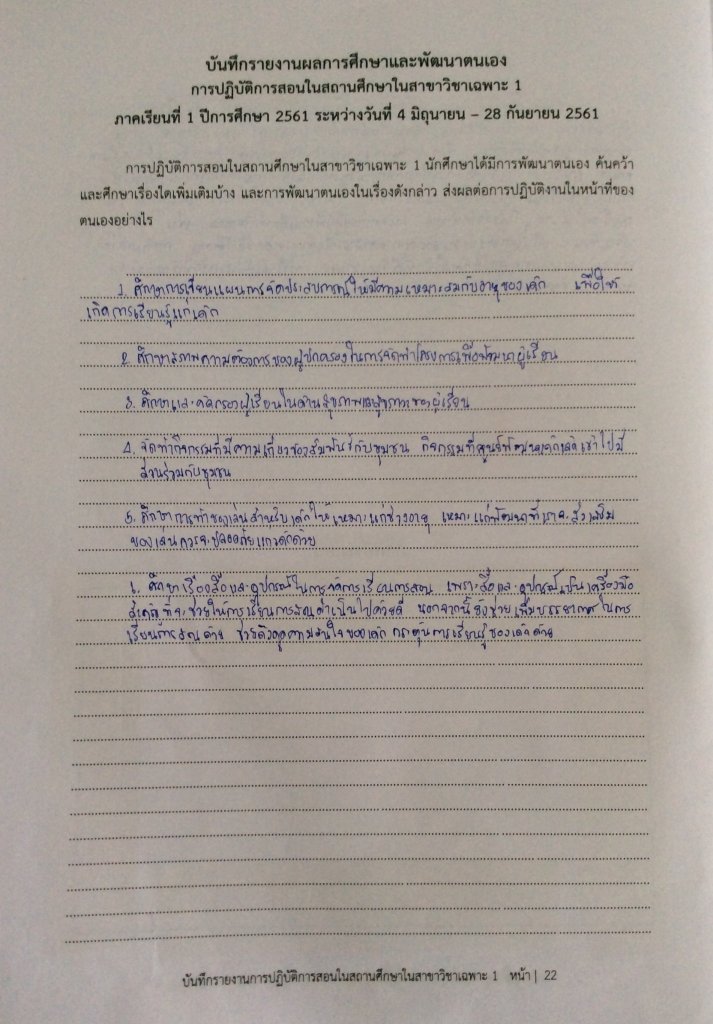 บันทึกรายงานผลการศึกษาและพัฒนาตนเอง
การปฏิบัติการสอนในสถานศึกษาในสาขาวิชาเฉพาะ 1
ภาคเรียนที่ 1 ปีการศึกษา 2561 ระหว่างวันที่ 4 มิถุนายน – 28 กันยายน 2561
การปฏิบัติการสอนในสถานศึกษาในสาขาวิชาเฉพาะ 1 นักศึกษาได้มีการพัฒนาตนเอง ค้นคว้า
และศึกษาเรื่องใดเพิ่มเติมบ้าง และการพัฒนาตนเองในเรื่องดังกล่าว ส่งผลต่อการปฏิบัติงานในหน้าที่ของ
ตนเองอย่างไร
1. ศึกษาการเขียนแผนการจัดประสบการณ์ให้มีความเหมาะสมกับอายุของเด็ก เพื่อให้
เกิดการเรียนรู้แก่เด็ก
2. ศึกษาสภาพความต้องการของผู้ปกครองในการจัดทำโครงการเพื่อพัฒนาผู้เรียน
3. ศึกษาและคัดกรองผู้เรียนในด้านสุขภาพและสุขภาวะของผู้เรียน
4. จัดทำกิจกรรมที่มีความเกี่ยวข้องสัมพันธ์กับชุมชน กิจกรรมที่ศูนย์พัฒนาเด็กเล็กเข้าไปมี
ส่วนร่วมกับชุมชน
5. ศึกษาการทำของเล่นสำหรับเด็กให้เหมาะแก่ช่วงอายุ เหมาะแก่พัฒนาที่เราจะส่งเสริม
ของเล่นควรจะปลอดภัยแก่เด็กด้วย
6. ศึกษาเรื่องสื่อและอุปกรณ์ในการจัดการเรียนการสอน เพราะสื่อและอุปกรณ์เป็นเครื่องมือ
สำคัญที่จะช่วยให้การเรียนการสอนดำเนินไปด้วยดี นอกจากนี้ยังช่วยเพิ่มบรรยากาศในการ
เรียนการสอนด้วย ช่วยดึงดูดความสนใจของเด็ก กระตุ้นการเรียนรู้ของเด็กด้วย
บันทึกรายงานการปฏิบัติการสอนในสถานศึกษาในสาขาวิชาเฉพาะ 1 หน้า | 22